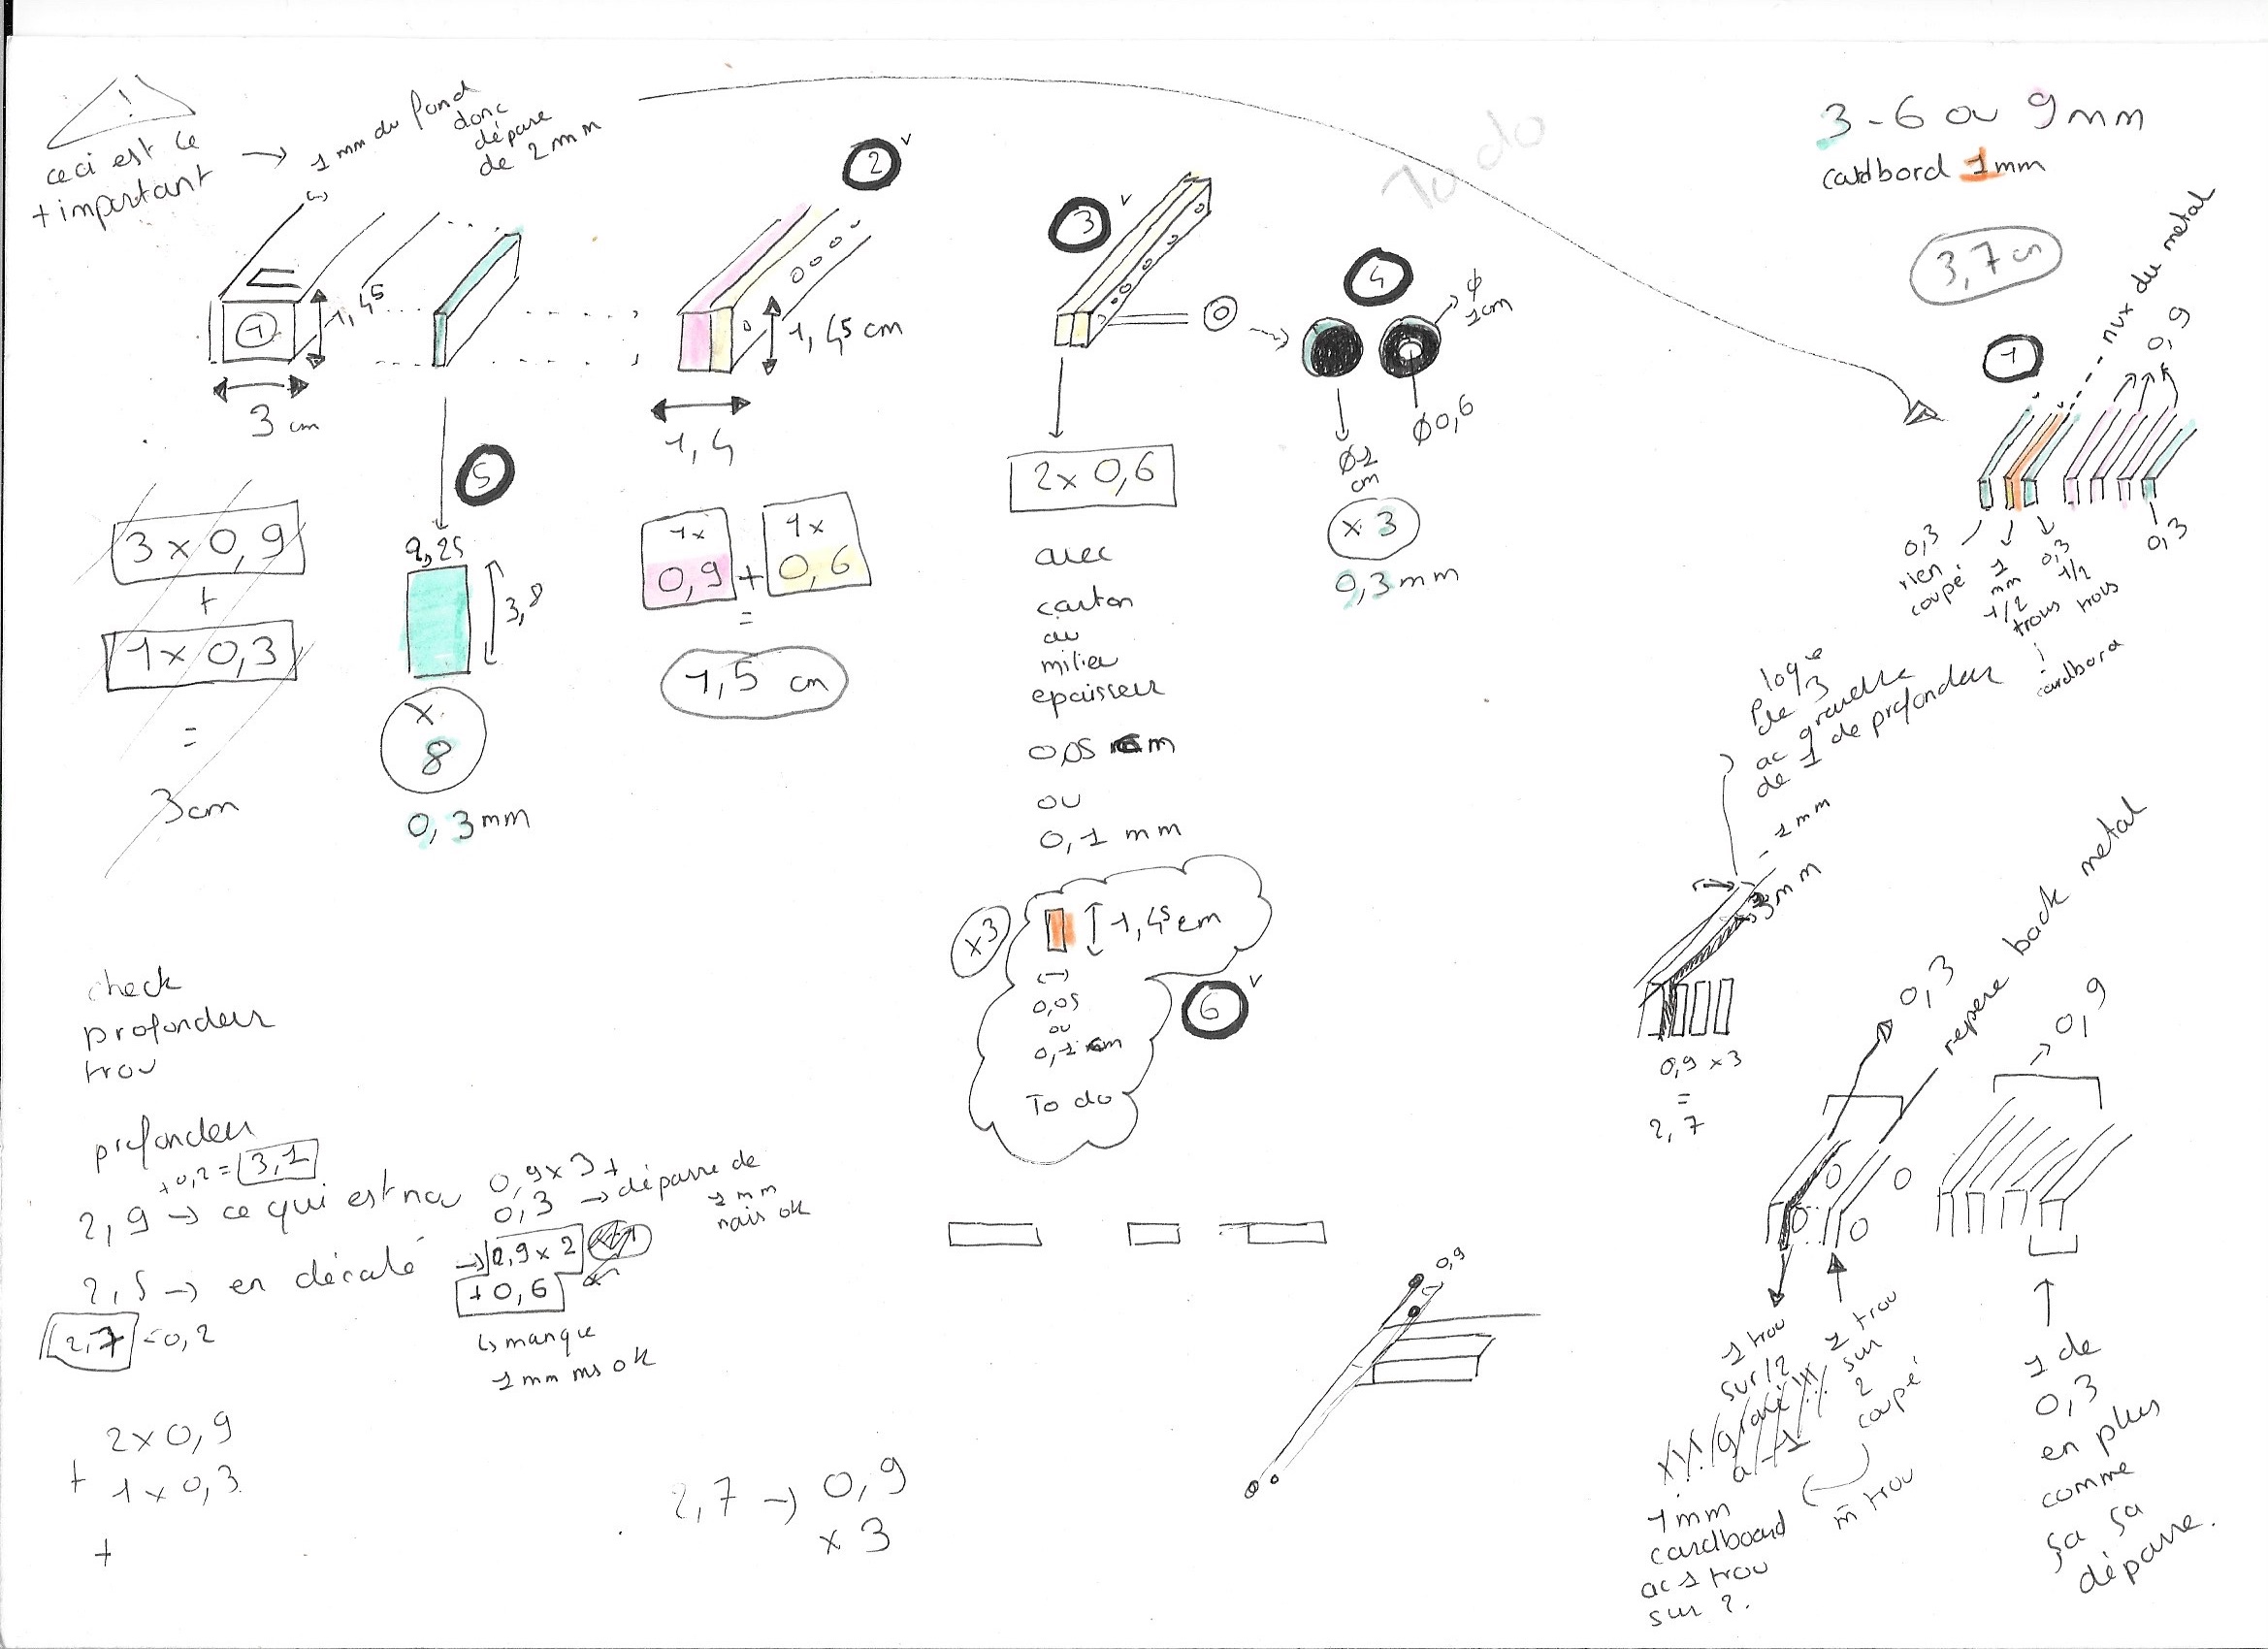 !
ceci est ce
+ important
→ 1 mm du fond
donc
dépasse
de 2 mm
1
1,45
3 cm
3 x 0,9
+
1 x 0,3
=
3 cm
5
2,25
3,8
x
8
0,3 mm
2 v
1,45 cm
1,4
1x
0,9
+
1x
0,6
=
1,5 cm
3 v
2 x 0,6
avec
carton
au
milieu
epaisseur
0,05 m
ou
0,1 mm
x3
1,45 cm
0,05
ou
0,1 m
To do
6 v
4
ø
1 cm
ø 0,6
ø 1
cm
x 3
0,3 mm
To do
3 - 6 ou 9 mm
cardbord 1 mm
3,7 cm
nvx du metal
0,9
1
0,3
rien
coupé
1
mm
1/2
trous
0,3
1/2
trous
cardbord
0,3
de 3
de 1 de profondeur
- 1 mm
3 mm
0,9 x 3
=
2,7
0,3
repere back metal
→ 0,9
1 trou
sur 2
gravé
a - 1
1 trou
sur
2
coupé
m̄ trou
1 mm
cardboard
ac 1 trou
sur 2.
1 de
0,3
en plus
comme
ça ça
dépasse.
check
profondeur
trou
profondeur
+0,2 = 3,1
2,9 → ce qui est nov 0,9 x 3 +
0,3 → dépasse de
1 mm
mais ok
2,5 → en décalé → 0,9 x 2
+ 0,6
↳ manque
1 mm ms ok
2,7 = 0,2
2 x 0,9
+ 1 x 0,3
+
2,7 → 0,9
x 3
0,9